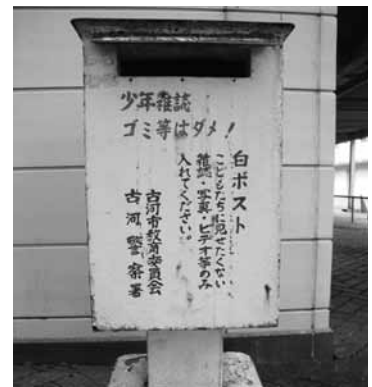 少年雑誌
ゴミ等はダメ!
白ポスト
こどもたちに見せたくない
雑誌・写真・ビデオ等のみ
入れてください。
古河市教育委員会
古河警察署